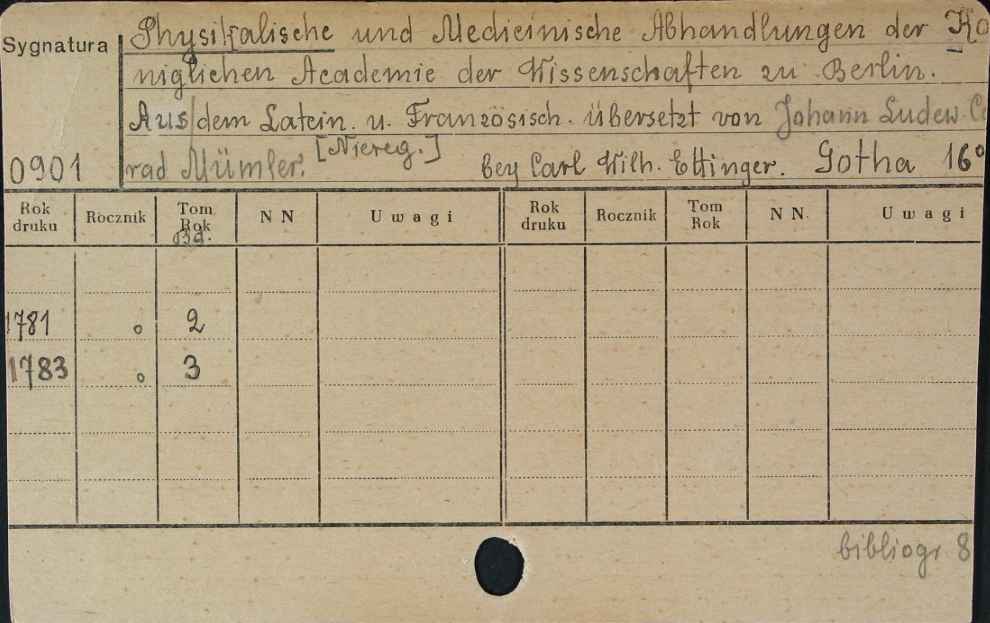 Sygnatura
Physikalische und Medicinische Abhandlungen der Kö
niglichen Academie der Wissenschaften zu Berlin.
Aus dem Latein. u. Französisch. übersetzt von Johann Ludew. Co
0901 rad Mümler. [Niereg.] bey Carl Wilh. Ettinger. Gotha 16°
Rok druku Rocznik Tom Rok Bd. N N Uwagi Rok druku Rocznik Tom Rok N N. Uwagi
1781 o 2
1783 o 3
bibliogr 8